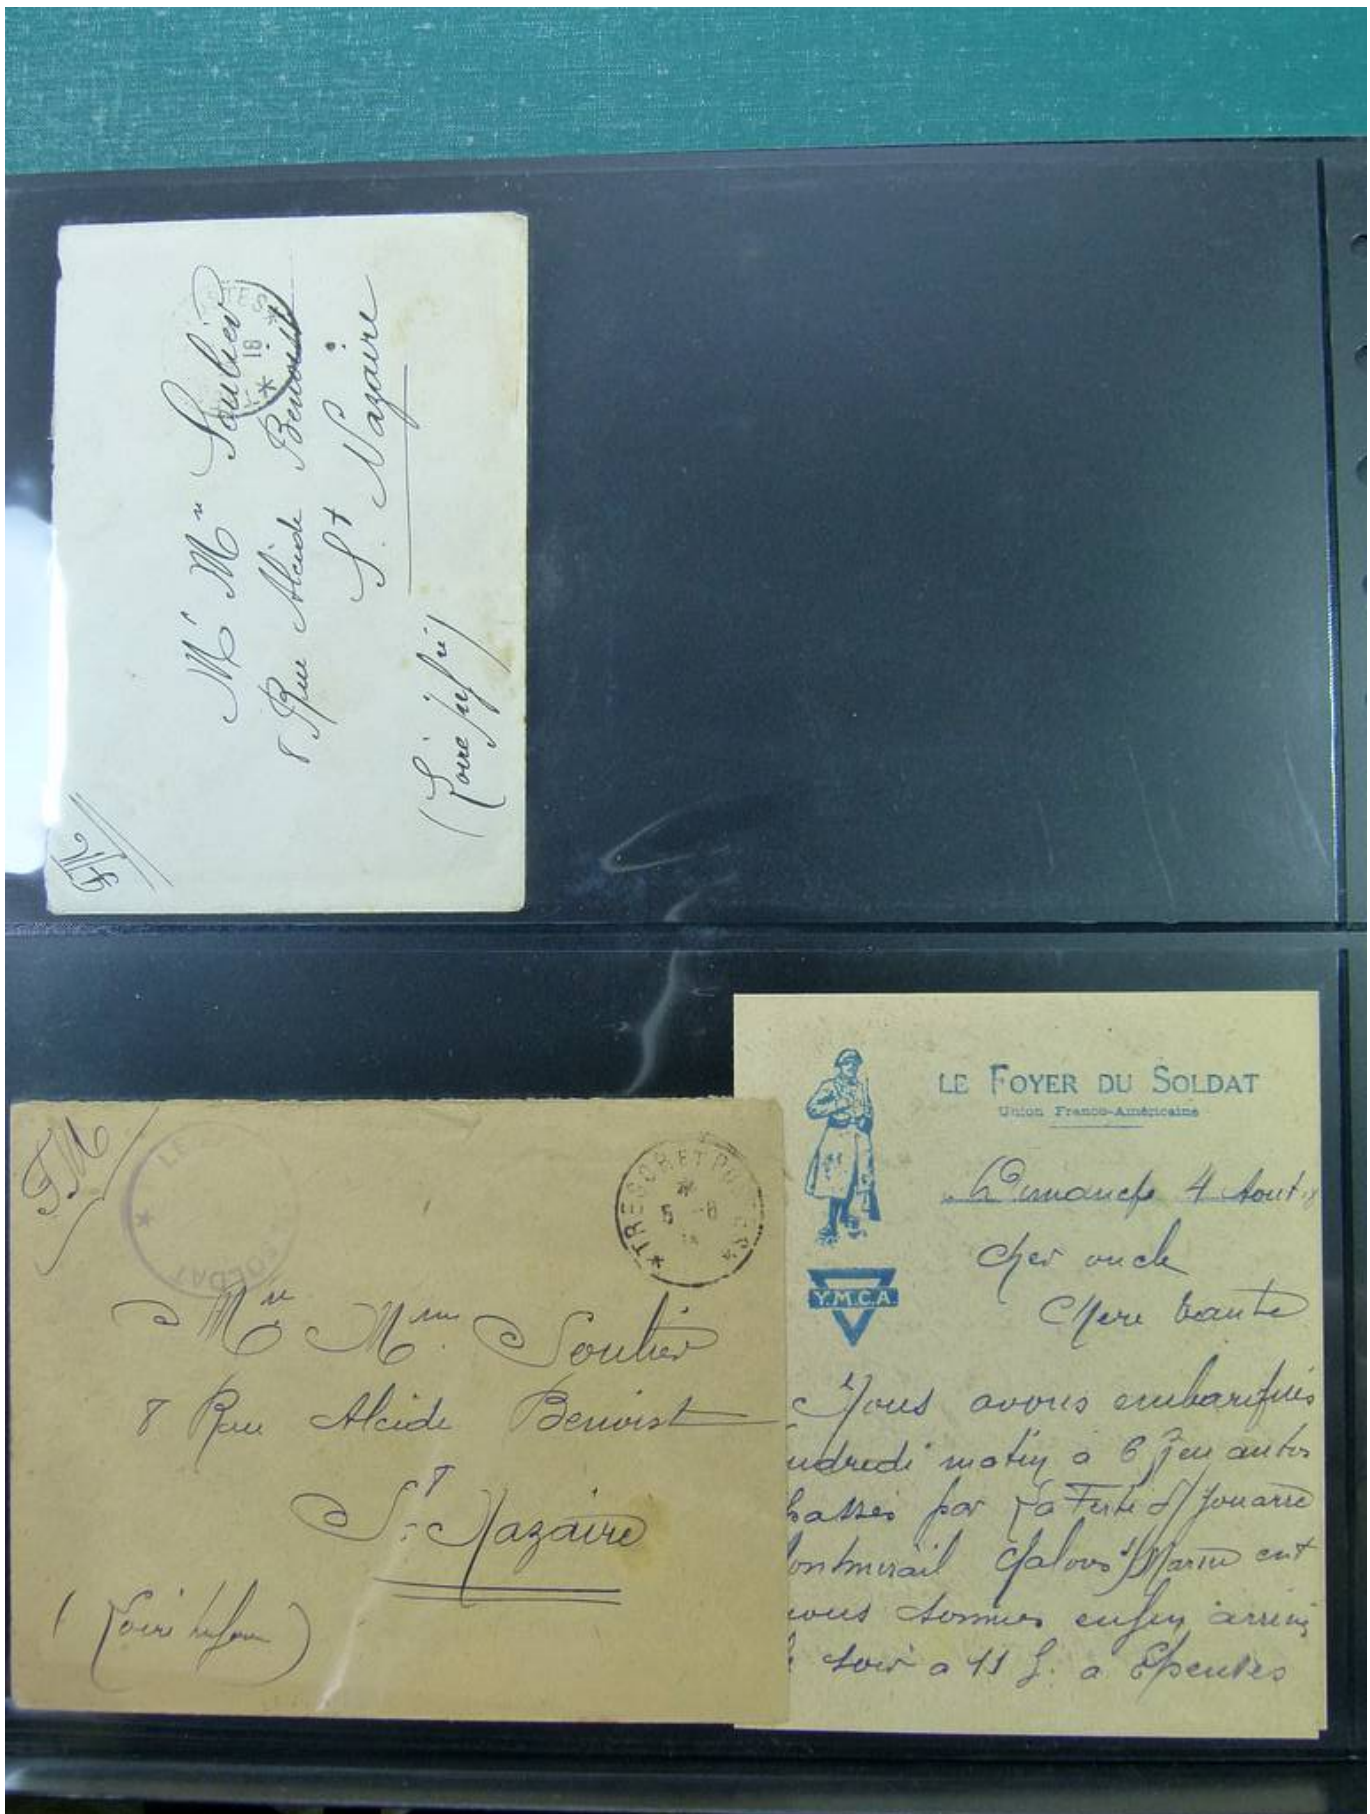 FM
Mr Mme Soulier
8 Rue Alcide Benoist
St Nazaire
(Loire infre)
TES
18
FM
LE
SOLDAT
TRESOR ET POSTES
5 -8
Mr Mme Soulier
8 Rue Alcide Benoist
St Nazaire
(Loire Infre)
LE FOYER DU SOLDAT
Union Franco-Américaine
Y.M.C.A.
Dimanche 4 Aout 18
Cher oncle
Chere tante
Nous avons embarqués
ndredi matin a 6 h en autos
passés par La Ferté s/ Jouarre
ontmirail Chalons s/ Marne ent
nous sommes enfin arrivés
soir a 11 h. a Epenses